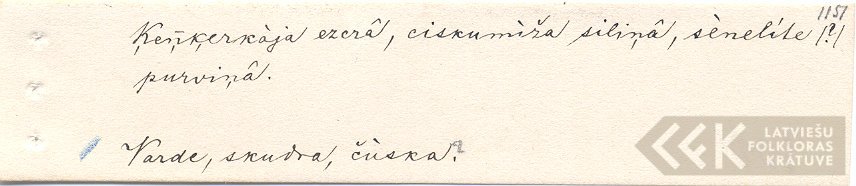 1151
Ķeņ̃ķerkàja ezerâ, ciskumìža siliņâ, sènelíte /?/
purviņâ.
Varde, skudra, čùska?
LATVIEŠU
FOLKLORAS
KRĀTUVE